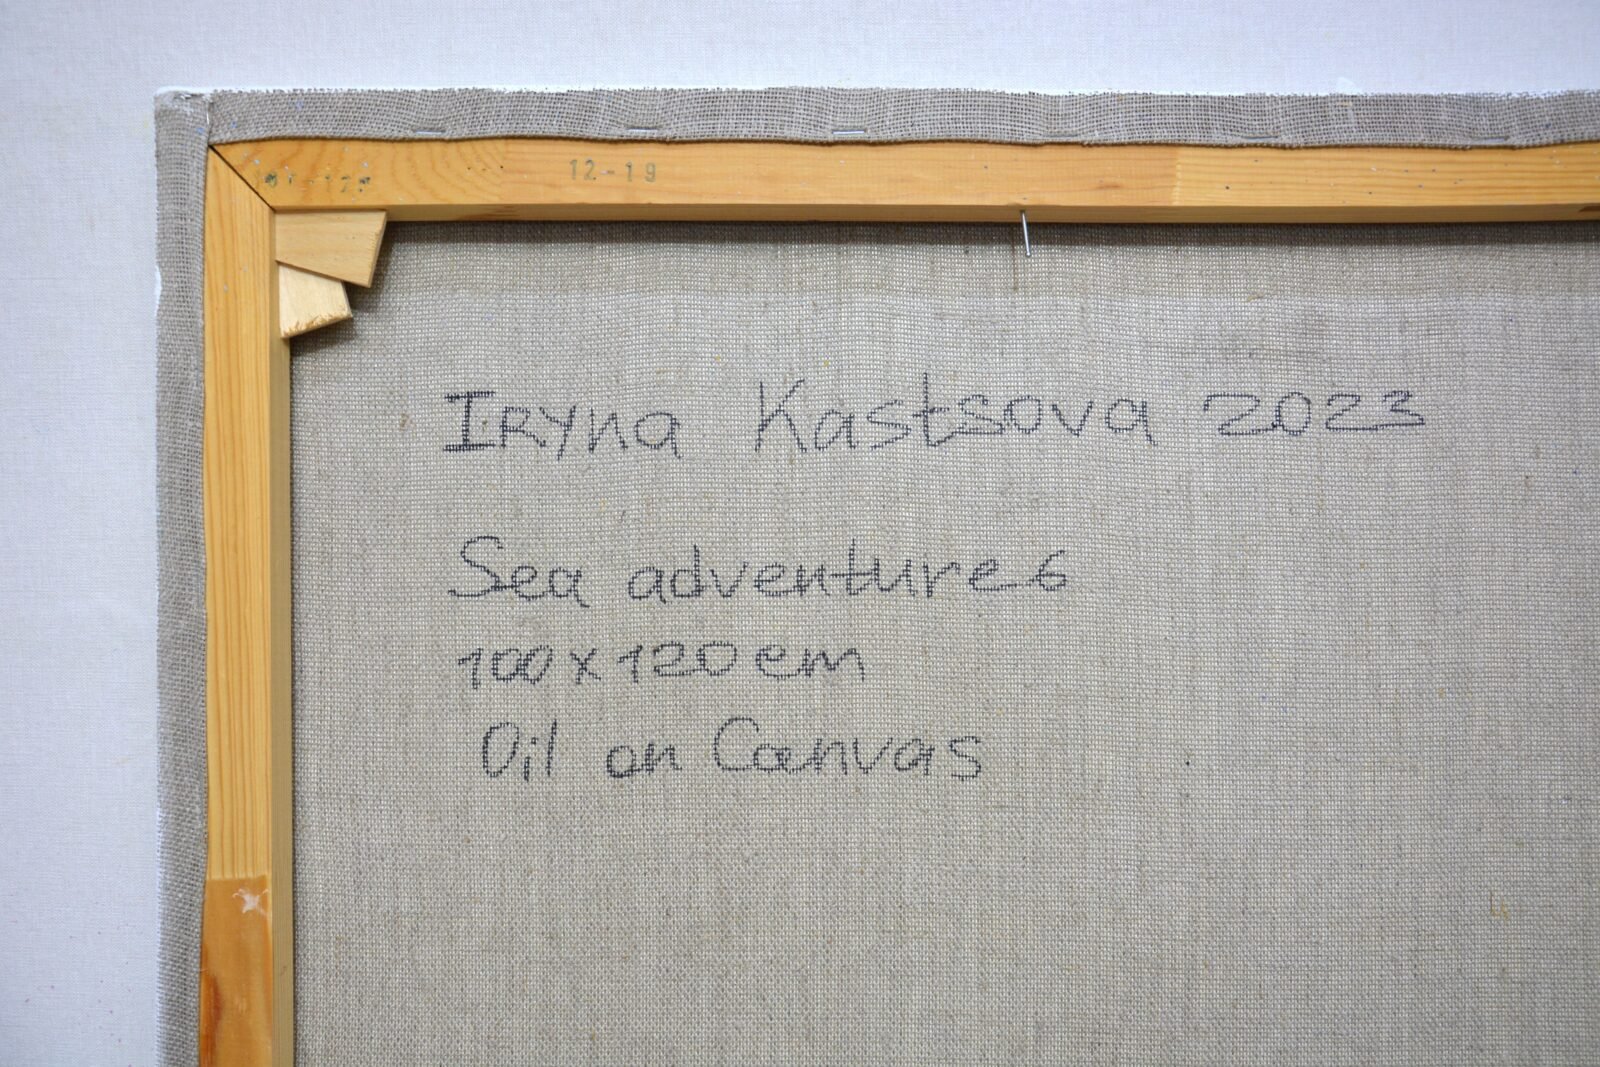 12-19
IRyna Kastsova 2023
Sea adventure 6
100 x 120 cm
Oil on Canvas